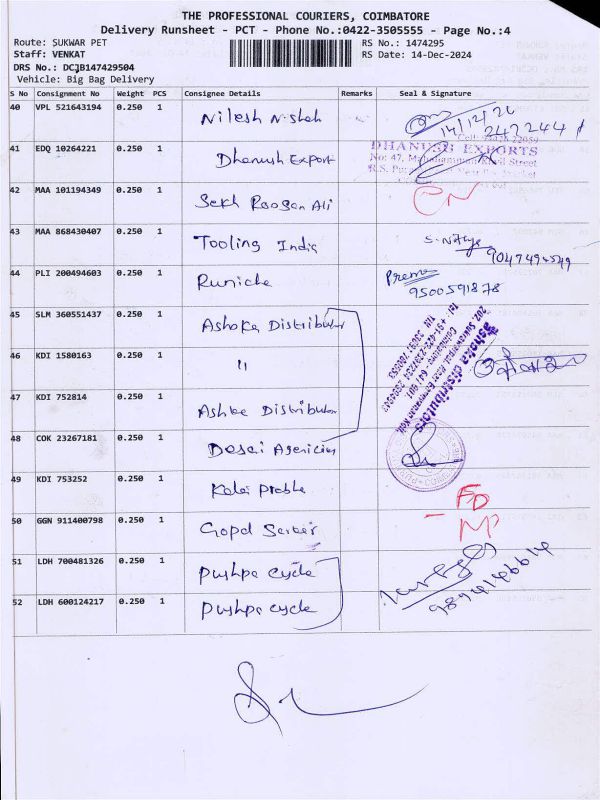 THE PROFESSIONAL COURIERS, COIMBATORE
Delivery Runsheet - PCT - Phone No.:0422-3505555 - Page No.:4
Route: SUKWAR PET RS No.: 1474295
Staff: VENKAT RS Date: 14-Dec-2024
DRS No.: DCJB147429504
Vehicle: Big Bag Delivery
S No Consignment No Weight PCS Consignee Details Remarks Seal & Signature
40 VPL 521643194 0.250 1 Nilesh N. shah 14/12/24 242244
41 EDQ 10264221 0.250 1 Dhanush Export DHANUSH EXPORTS
42 MAA 101194349 0.250 1 Sekh Roogan Ali
43 MAA 868430407 0.250 1 Tooling India 9047494549
44 PLI 200494603 0.250 1 Runiche Prema 9500591878
45 SLM 360551437 0.250 1 Ashoka Distributor Ashoka Distributors
46 KDI 1580163 0.250 1 "
47 KDI 752814 0.250 1 Ashke Distributor
48 COK 23267181 0.250 1 Desai Agencies
49 KDI 753252 0.250 1 Kalai Prabha
50 GGN 911400798 0.250 1 Gopal
51 LDH 700481326 0.250 1 Pushpa cycle
52 LDH 600124217 0.250 1 Pushpa cycle 9894146614